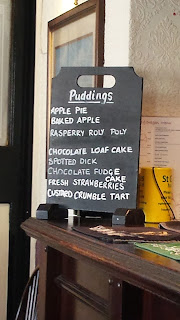 Puddings
APPLE PIE
BAKED APPLE
RASPERRY ROLY POLY
CHOCOLATE LOAF CAKE
SPOTTED DICK
CHOCOLATE FUDGE CAKE
FRESH STRAWBERRIES
CUSTARD CRUMBLE TART